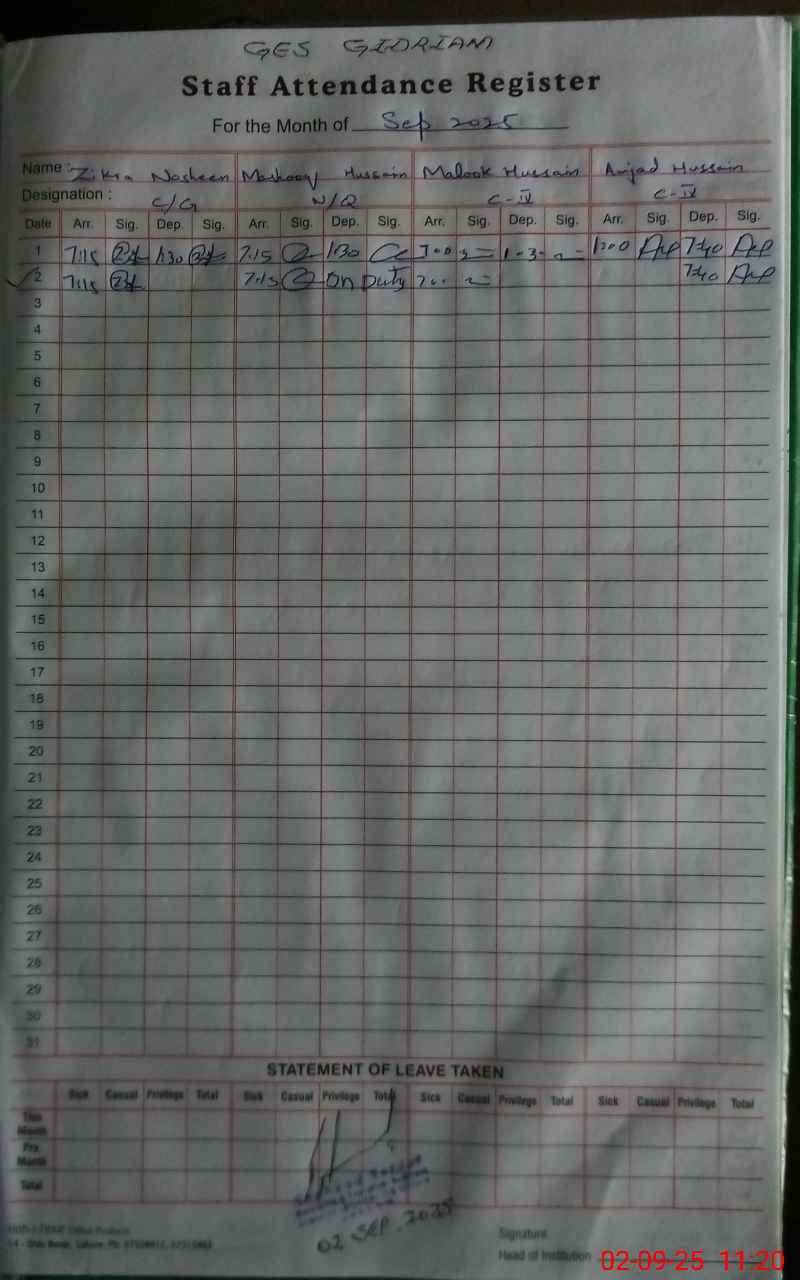 GES GIDRIAM
Staff Attendance Register
For the Month of Sep 2025
Name : Zikra Nosheen Mashooq Hussain Malook Hussain Amjad Hussain
Designation : C/G N/Q C-IV C-IV
Date Arr. Sig. Dep. Sig. Arr. Sig. Dep. Sig. Arr. Sig. Dep. Sig. Arr. Sig. Dep. Sig.
1 7:15 1:30 7:15 1:30 7:00 1:30 1:00 7:40
2 7:15 7:15 On Duty 7:00 7:40
3
4
5
6
7
8
9
10
11
12
13
14
15
16
17
18
19
20
21
22
23
24
25
26
27
28
29
30
31
STATEMENT OF LEAVE TAKEN
Sick Casual Privilege Total Sick Casual Privilege Total Sick Casual Privilege Total Sick Casual Privilege Total
This Month
Prv. Month
Total
02 SEP 2025
Signature
Head of Institution
02-09-25 11:20